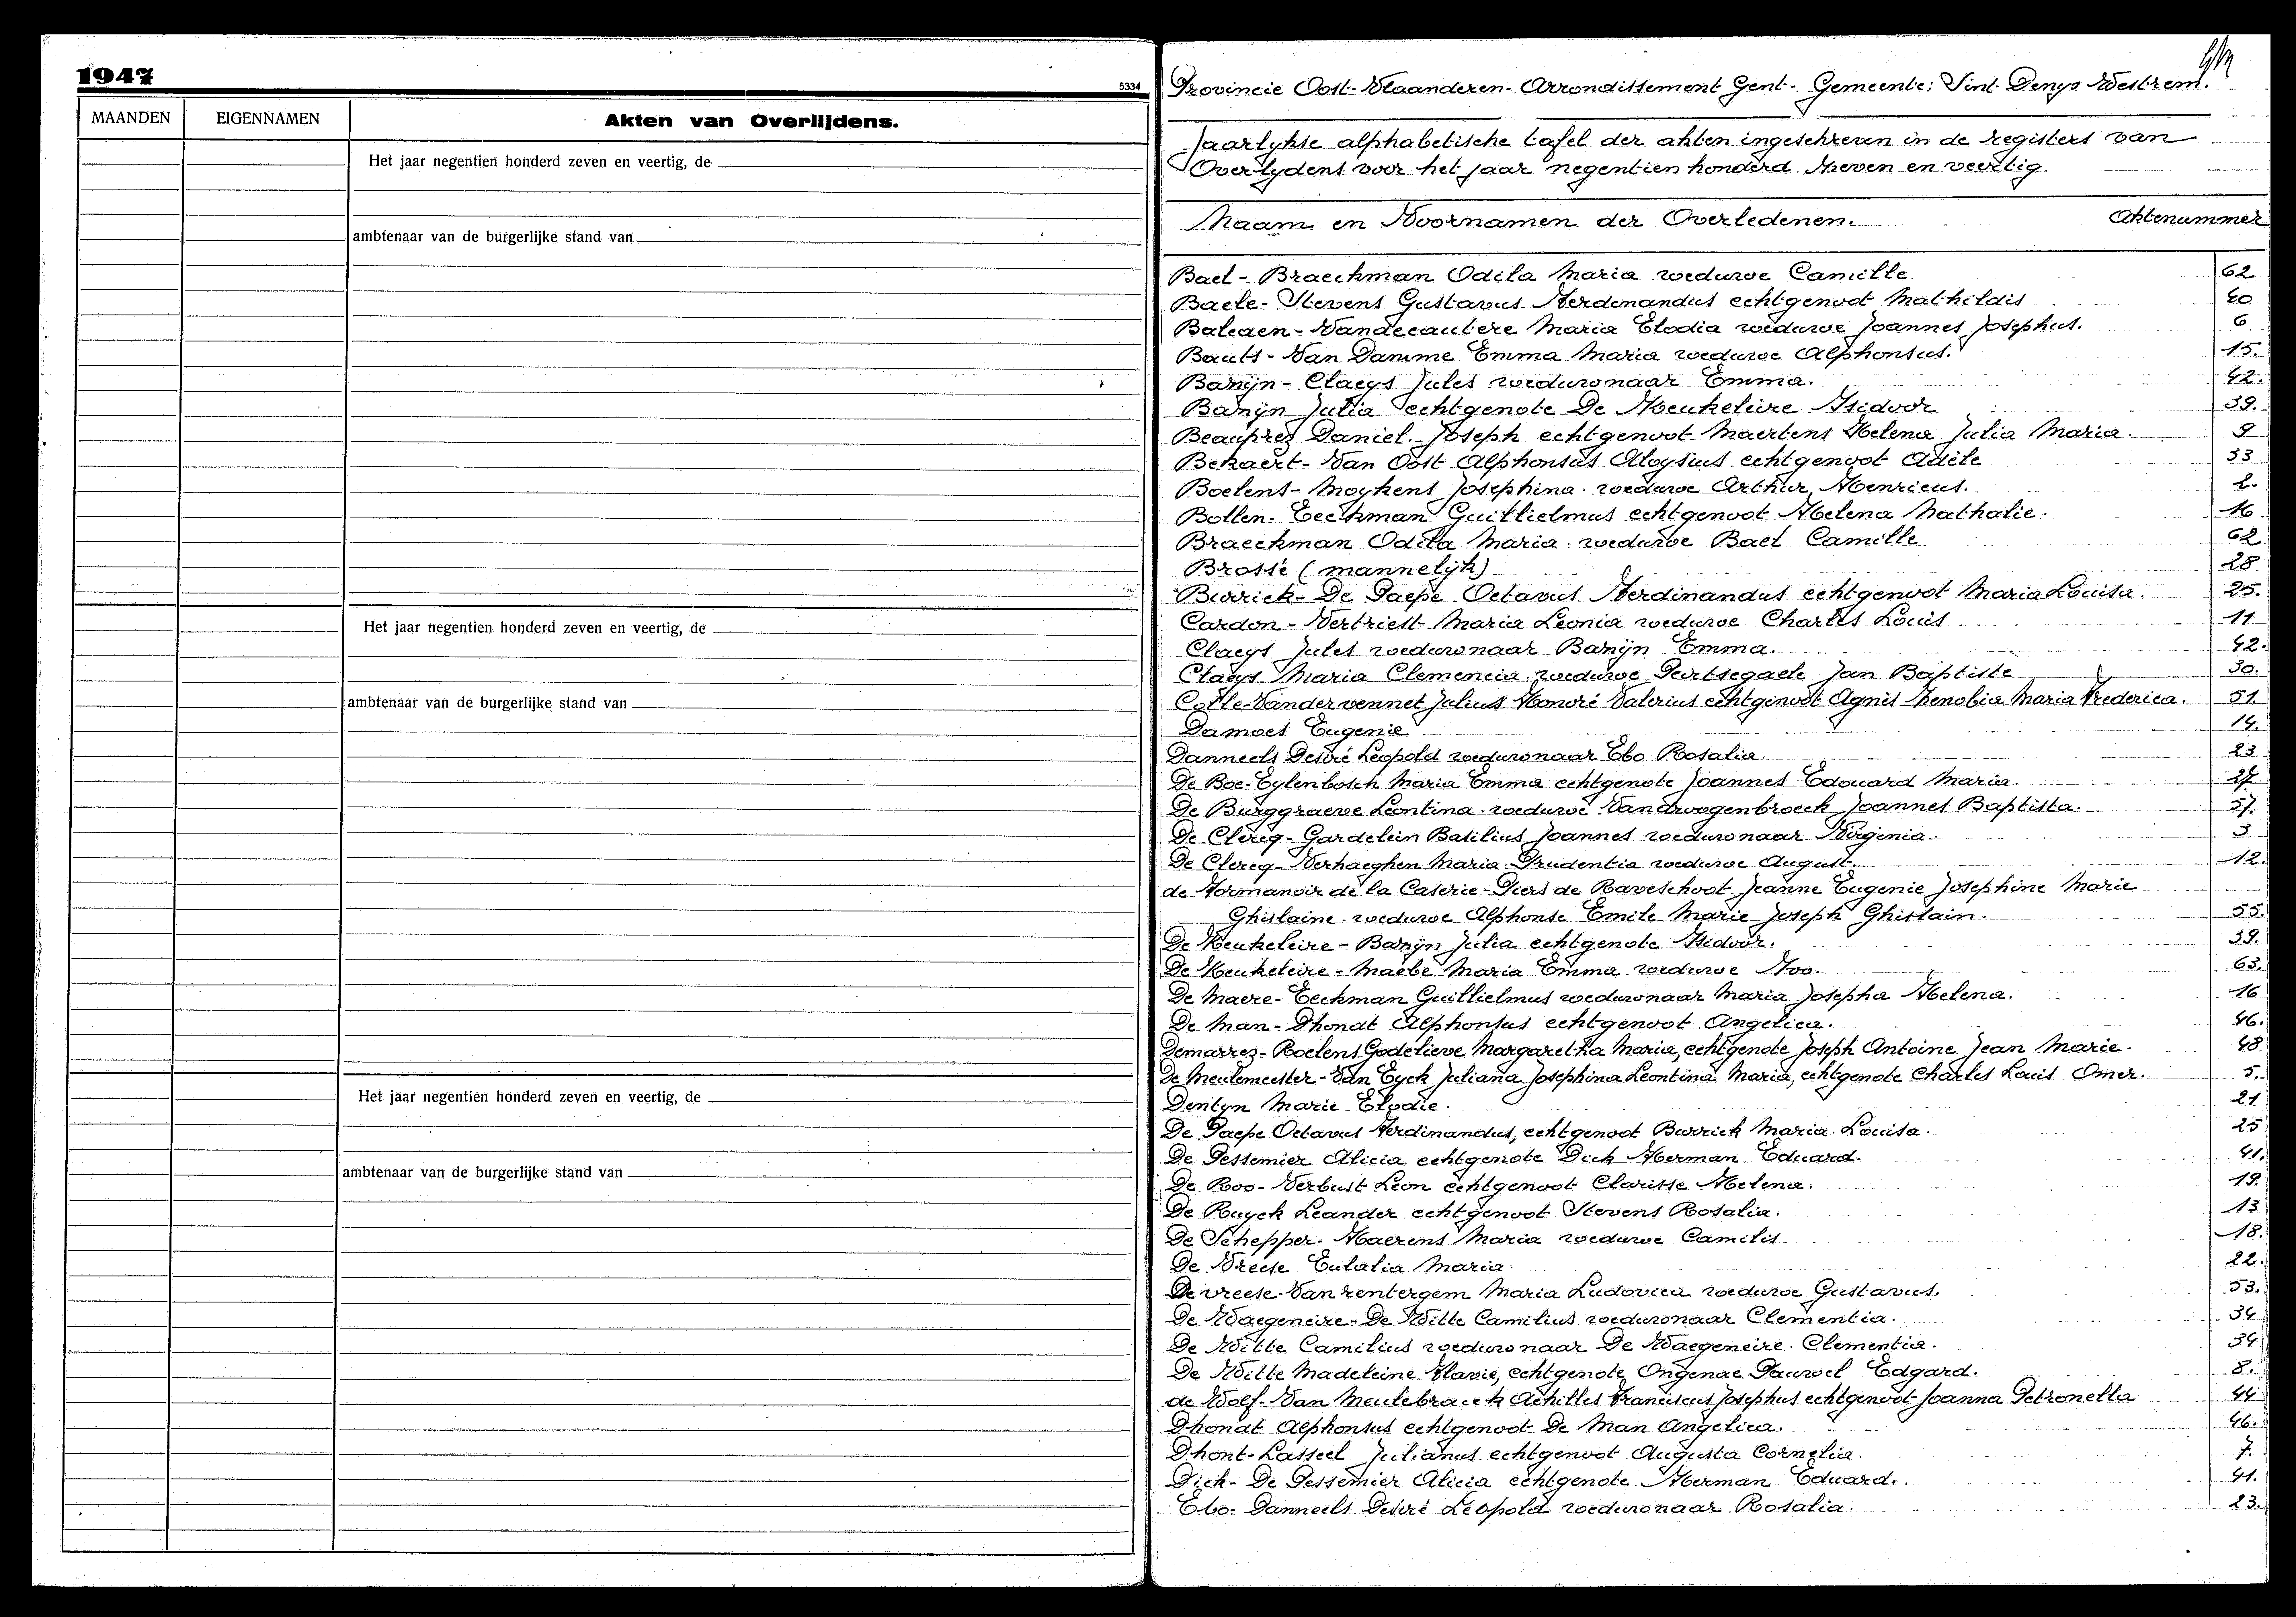 1947
5334
MAANDEN EIGENNAMEN Akten van Overlijdens.
Het jaar negentien honderd zeven en veertig, de
ambtenaar van de burgerlijke stand van
Het jaar negentien honderd zeven en veertig, de
ambtenaar van de burgerlijke stand van
Het jaar negentien honderd zeven en veertig, de
ambtenaar van de burgerlijke stand van
Provincie Oost-Vlaanderen - Arrondissement Gent - Gemeente: Sint Denys Westrem.
Jaarlykse alphabetische tafel der akten ingeschreven in de registers van
Overlydens voor het jaar negentien honderd zeven en veertig.
Naam en Voornamen der Overledenen. Aktenummer
Bael - Braeckman Odila Maria weduwe Camille 62
Baele - Stevens Gustavus Ferdinandus echtgenoot Mathildis 40
Balcaen - Vandecautere Maria Elodia weduwe Joannes Josephus. 6
Bauts - Van Damme Emma Maria weduwe Alphonsus. 15.
Barijn - Claeys Jules weduwnaar Emma. 42.
Barijn Julia echtgenote De Keukeleire Isidoor 39.
Beauprez Daniel Joseph echtgenoot Maertens Helena Julia Maria. 9
Bekaert - Van Oost Alphonsus Aloysius echtgenoot Adèle 33
Boelens - Moykens Josephina weduwe Arthur Henricus. 2.
Bollen - Eeckman Guillielmus echtgenoot Helena Nathalie. 16
Braeckman Odila Maria weduwe Bael Camille 62
Brosse (mannelijk) 28
Burrick - De Paepe Octavus Ferdinandus echtgenoot Maria Louisa. 25.
Cardon - Verbriest Maria Leonia weduwe Charles Louis 11
Claeys Jules weduwnaar Barijn Emma. 42.
Claeys Maria Clemencia weduwe Peirtsegaele Jan Baptiste 30.
Colle - Vandervennet Julius Honoré Valerius echtgenoot Agnes Zenobia Maria Frederica. 51.
Damoes Eugenie 14.
Danneels Desiré Leopold weduwnaar Ebo Rosalia. 23
De Boe - Eylenbosch Maria Emma echtgenote Joannes Edouard Maria. 27.
De Burggraeve Leontina weduwe Vandwogenbroeck Joannes Baptista. 57.
De Clercq - Gardelein Basilius Joannes weduwnaar Virginia 3
De Clercq - Verhaeghen Maria Prudentia weduwe August. 12.
de Formanoir de la Caserie - Piers de Raveschoot Jeanne Eugenie Josephine Marie
Ghislaine weduwe Alphonse Emile Marie Joseph Ghislain. 55.
De Keukeleire - Barijn Julia echtgenote Isidoor. 39.
De Keukeleire - Maebe Maria Emma weduwe Ivo. 63.
De Maere - Eeckman Guillielmus weduwnaar Maria Josepha Helena. 16
De Man - Dhondt Alphonsus echtgenoot Angelica. 46.
Demarrez - Roelens Godelieve Margaretha Maria, echtgenote Joseph Antoine Jean Marie. 48
De Meulemeester - Van Eyck Juliana Josephina Leontina Maria, echtgenote Charles Louis Omer. 5.
Denlyn Marie Elodie. 21
De Paepe Octavus Ferdinandus, echtgenoot Burrick Maria Louisa. 25
De Pessemier Alicia echtgenote Dick Herman Eduard. 41.
De Roo - Verbust Leon echtgenoot Clarisse Helena. 19.
De Ruyck Leander echtgenoot Stevens Rosalia. 13
De Schepper - Haerens Maria weduwe Camilis. 18.
De Vreese Eulalia Maria. 22.
De vreese - Vanrentergem Maria Ludovica weduwe Gustavus. 53.
De Waegeneire - De Witte Camilius weduwnaar Clementia. 34
De Witte Camilius weduwnaar De Waegeneire Clementia. 34
De Witte Madeleine Flavie, echtgenote Ongenae Pauwel Edgard. 8.
de Wolf - Van Meulebrouck Achilles Franciscus Josephus echtgenoot Joanna Petronella 44
Dhondt Alphonsus echtgenoot De Man Angelica. 46.
Dhont - Lasseel Julianus echtgenoot Augusta Cornelia. 7.
Dick - De Pessemier Alicia echtgenote Herman Eduard. 41.
Ebo - Danneels Desiré Leopold weduwnaar Rosalia. 23.